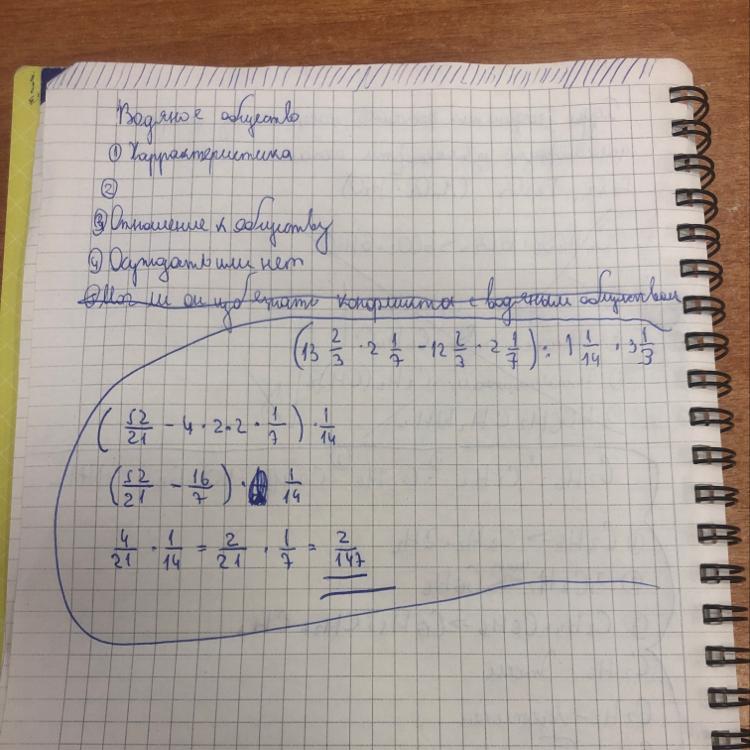 Водяное общество
① Харрактеристика
②
③ Отношение к обществу
④ Осуждать или нет
⑤ Мог ли он избежать конфликта с водяным обществом
(13 2/3 · 2 1/7 - 12 2/3 · 2 1/7) : 1 1/14 · 3 1/3
(52/21 - 4 · 2 · 2 · 1/7) · 1/14
(52/21 - 16/7) · 1/14
4/21 · 1/14 = 2/21 · 1/7 = 2/147